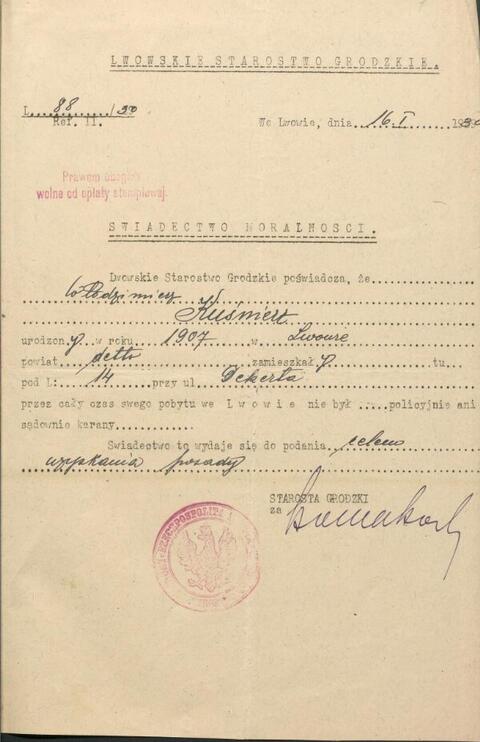 LWOWSKIE STAROSTWO GRODZKIE.
L. 88 /30
Ref. II.
We Lwowie, dnia 16.I 1930
Prawem
wolne od opłaty stemplowej.
SWIADECTWO MORALNOSCI.
Lwowskie Starostwo Grodzkie poświadcza, że
Włodzimierz
Kuśmierz
urodzony w roku 1907 w Lwowie
powiat detto zamieszkały tu
pod L: 14 przy ul Dekerta
przez cały czas swego pobytu we Lwowie nie był policyjnie ani
sądownie karany
Świadectwo to wydaje się do podania celem
uzyskania posady
STAROSTA GRODZKI
za
RZECZPOSPOLITA